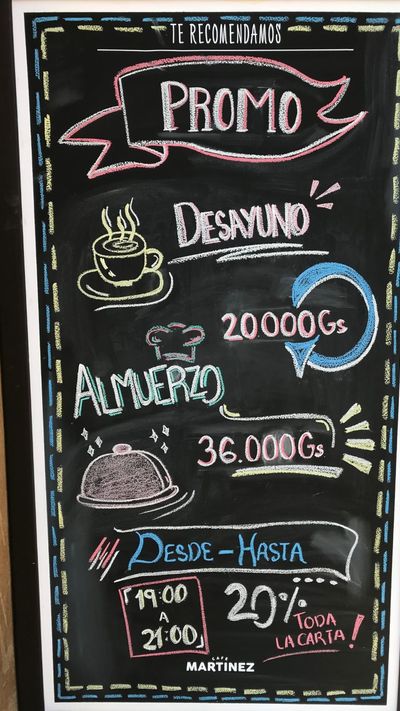 TE RECOMENDAMOS
PROMO
DESAYUNO
20000Gs
ALMUERZO
36.000Gs
DESDE - HASTA
19:00
A
21:00
20%
TODA
LA CARTA!
CAFÉ
MARTÍNEZ